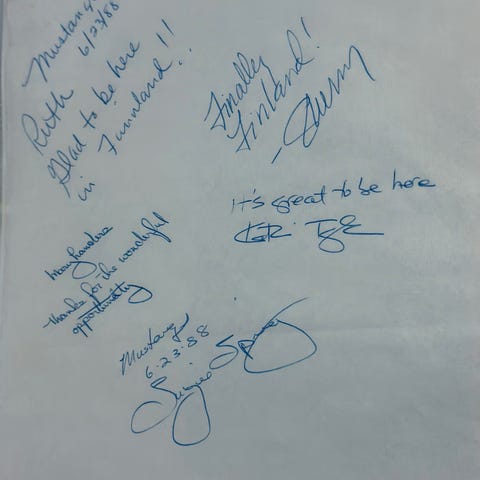 Mustang
6/23/88
Ruth
Glad to be here
in Funnland!!
Finally
Finland!
It's great to be here
thanks for the wonderful
opportunity
Mustang
6.23.88